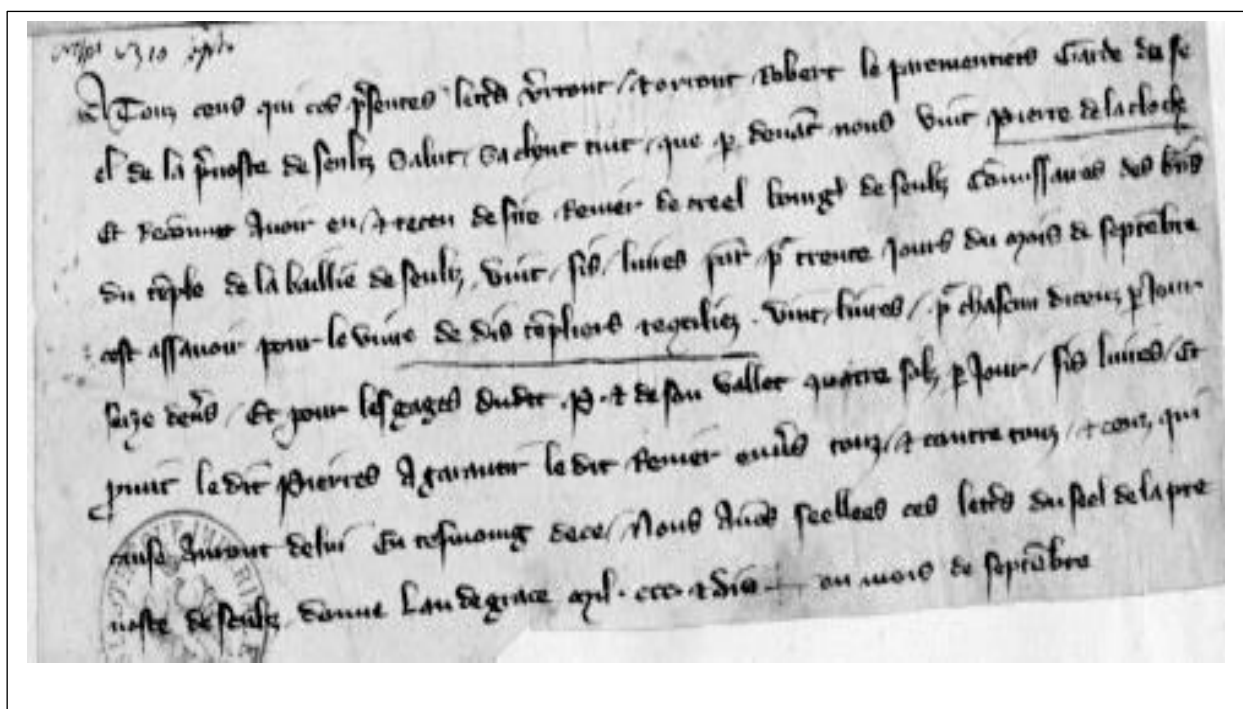 A Touz ceus qui ces p̃sentes lettres verront / & orront Robert le parementiers Garde du se
el de la p̃uoste de senliz Salut, Sachent tuit, que p deuãt nous vint pierre de la cloche
Et Recõnut Auoir eu / & receu de sire Renier de creel bourgois de senliz Cõmissaires des biẽs
du tẽple de la baillie de senliz, vint, sis, liures par̃ pr trente Jours du mois de septẽbre
cest assauoir pour le viure de dis tẽpliers . vint, liures / pr chascun diceuz p Jour
seize deñs / Et pour les gages dudit .P. & de son vallet quatre solz p Jour / sis liures / Et
pmist le dit Pierres A garantir le dit Renier enuers touz / & contre touz / & ceuz, qui
cause Auront de lui En tesmoing de ce / Nous Auõs seellees ces lettres du seel de la pre
uoste de senliz, donne Lan de grace mil . ccc . & dis ou mois de septẽbre